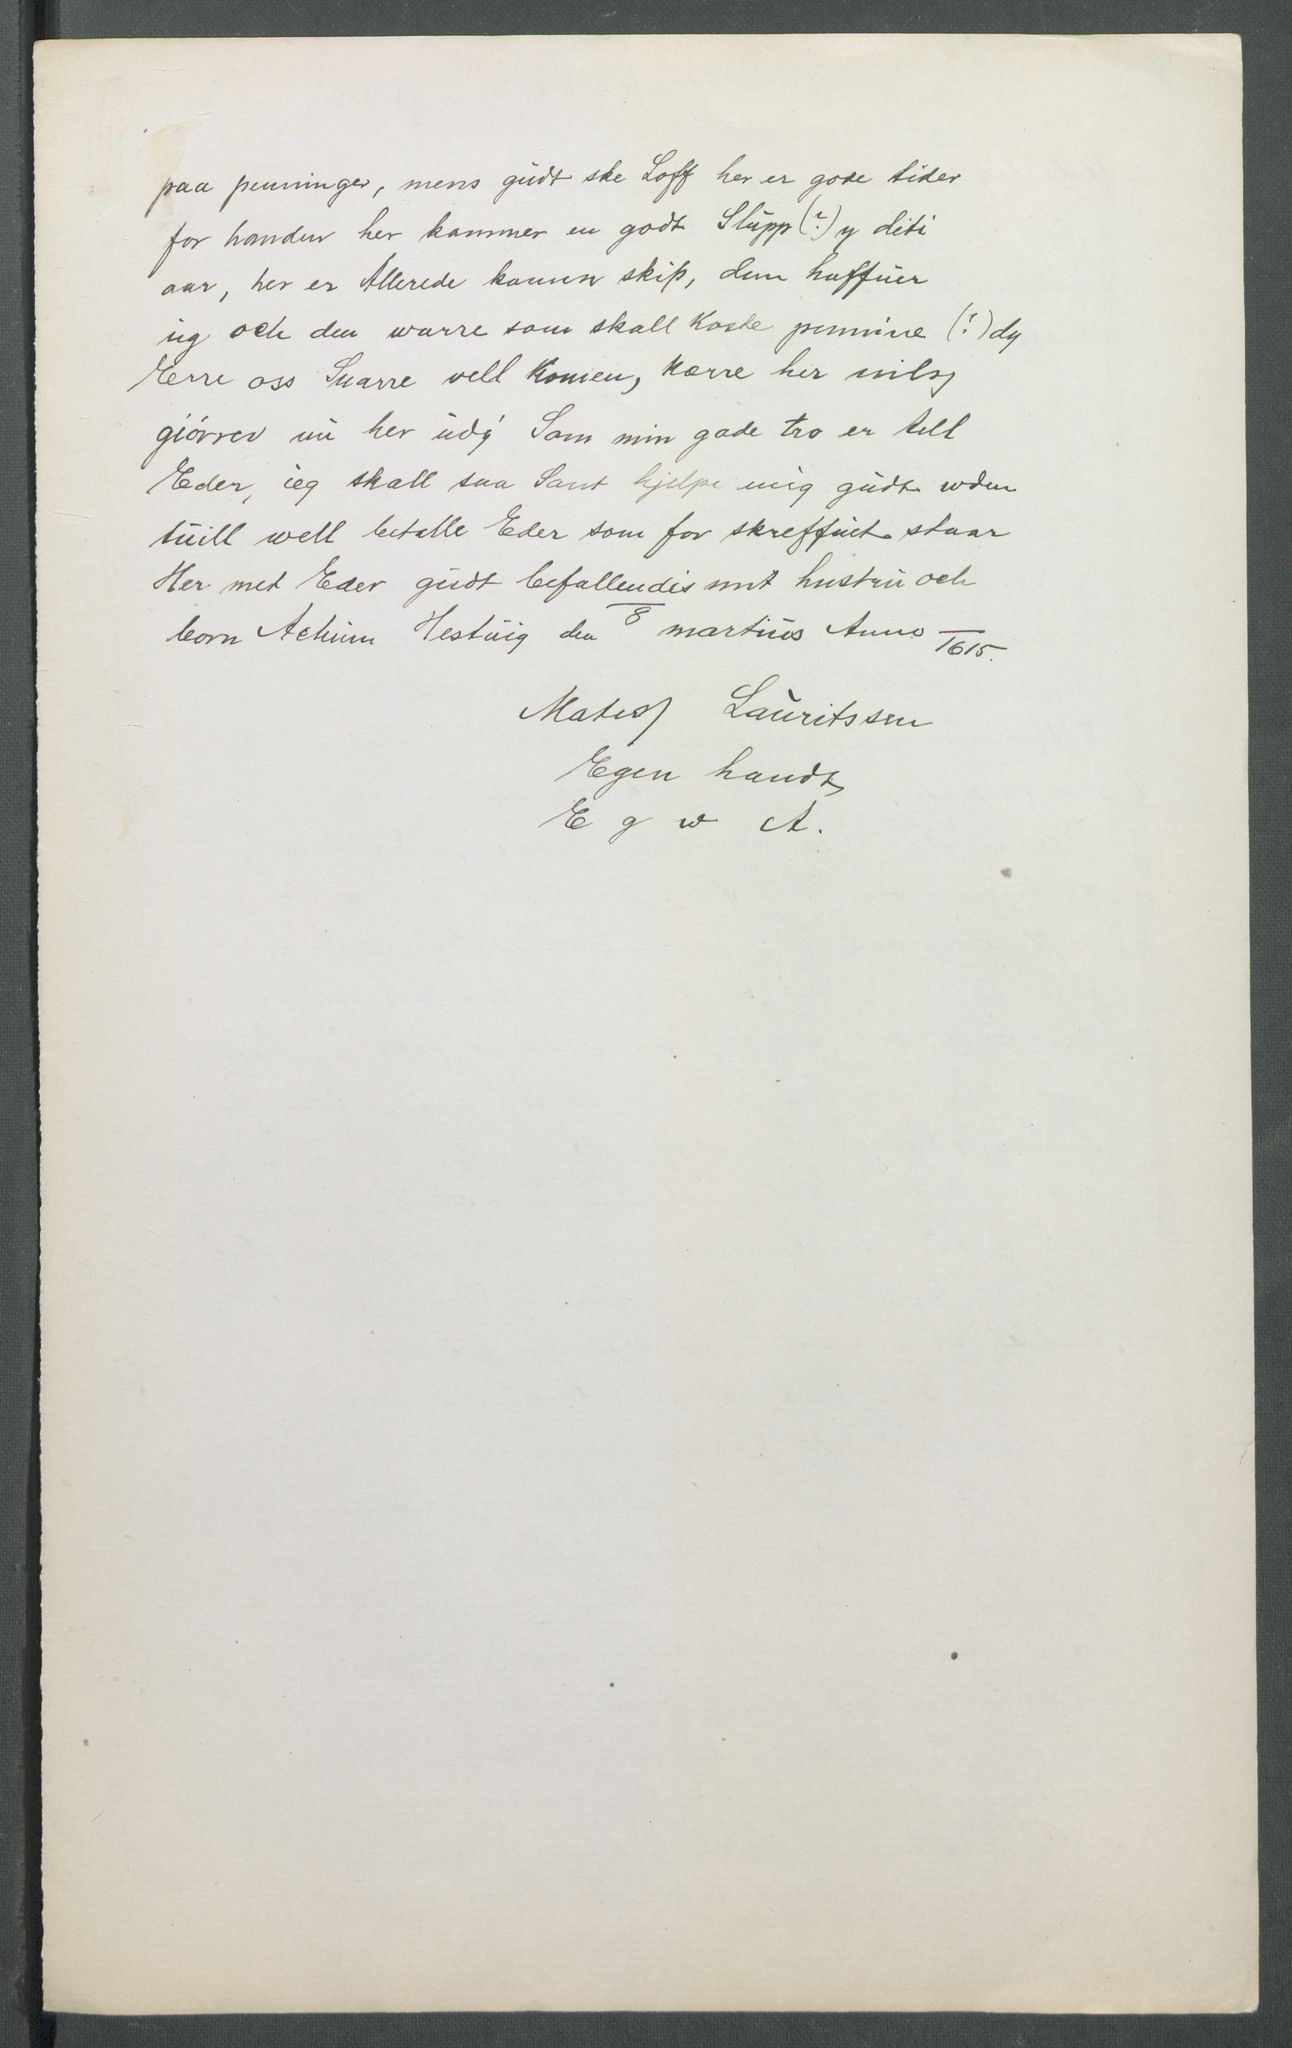 paa penninger, mens gudt ske Loff her er gode tider
for handen her kommer en godt Slupp (?) y diti
aar, her er Allerede komen skip, dem haffuer
ieg och den warre som skall Koste pennine (?) dy
Erre oss Suarre vell Komen, Kerre her nils
giörrer nu her udÿ Som min gode tro er till
Eder, ieg skall saa Sant hjelpe mig gudt uden
tuill well betalle Eder som for skreffuet staar
Her met Eder gudt befallendis mt hustru och
born Actum Hestuig den 8 martius Anno 1615.
Mates Lauritssen
Egen handt
E g w A.